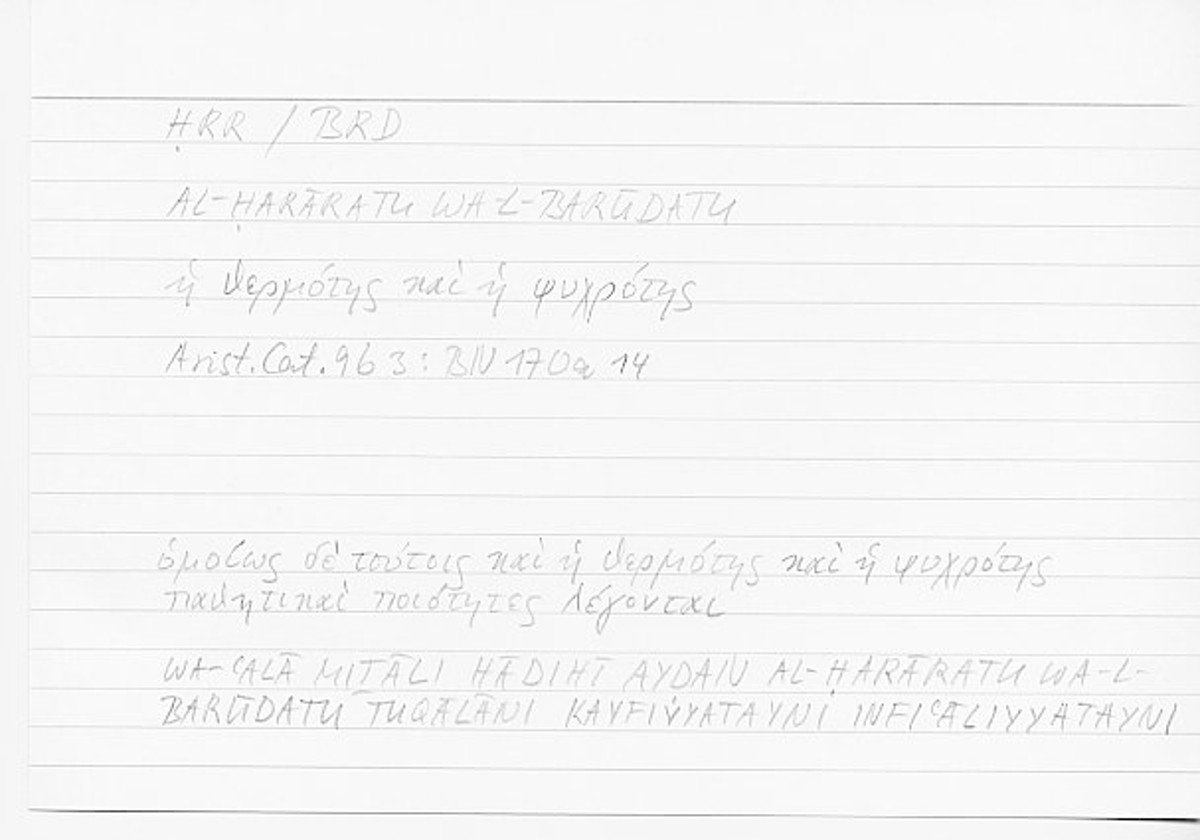 ḤRR / BRD
AL-ḤARĀRATU WA-L-BARŪDATU
ἡ θερμότης καὶ ἡ ψυχρότης
Arist. Cat. 9b 3 : BN 170a 14
ὁμοίως δὲ τούτοις καὶ ἡ θερμότης καὶ ἡ ψυχρότης
παθητικαὶ ποιότητες λέγονται
WA-ʿALĀ MITĀLI HĀDIHĪ AYDAN AL-ḤARĀRATU WA-L-
BARŪDATU TUQĀLĀNI KAYFIYYATAYNI INFIʿĀLIYYATAYNI